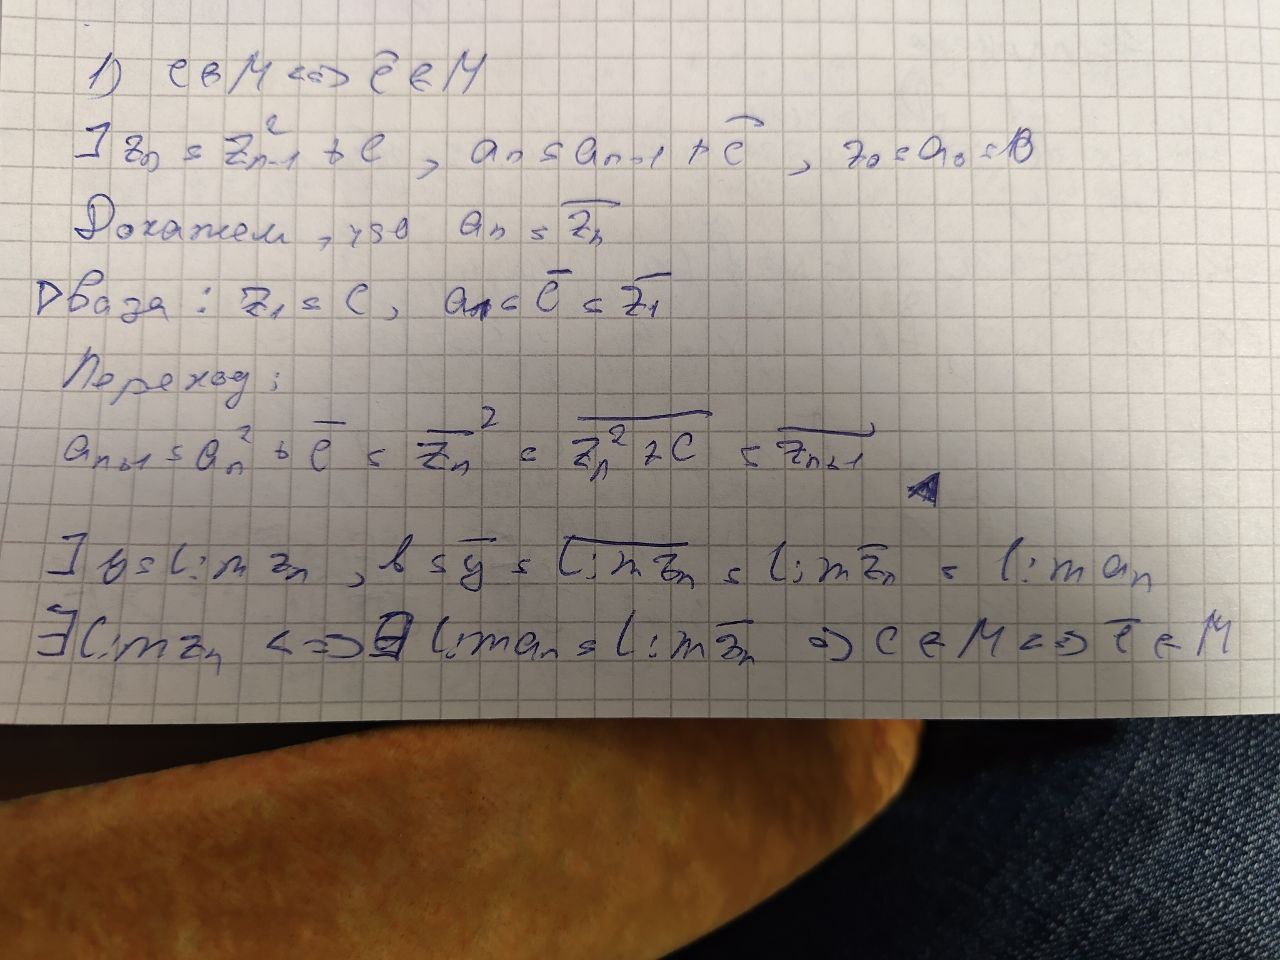 1) c ∈ M <=> c̅ ∈ M
] zₙ = zₙ₋₁² + c , aₙ = aₙ₋₁ + c̅ , z₀ = a₀ = 0
Докажем, что aₙ = z̅ₙ
▷ База: z₁ = c, a₁ = c̅ = z̅₁
Переход:
aₙ₊₁ = aₙ² + c̅ = z̅ₙ² = \overline{zₙ² + c} = \overline{zₙ₊₁} ◀
] y = lim zₙ , b = y̅ = \overline{lim zₙ} = lim z̅ₙ = lim aₙ
∃ lim zₙ <=> ∃ lim aₙ = lim z̅ₙ => c ∈ M <=> c̅ ∈ M